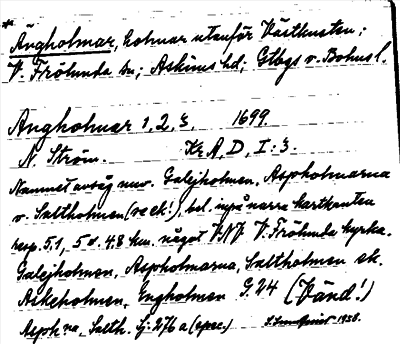 * Ängholmar, holmar utanför Västkusten;
V. Frölunda sn; Askims hd; Gtbgs o. Bohusl.
Ängholmar 1, 2, 3, 1699.
N. Ström. Kr A, D, I: 3.
Namnet avsåg nuv. Galejholmen, Aspholmarna
o. Saltholmen (se ek.!), bel. inpå norra kartkanten
resp. 5,1, 5 o. 4,8 km. något VNV V. Frölunda kyrka.
Galejholmen, Aspholmarna, Saltholmen ek.
Askeholmen, Engholmen G. 24 (Vänd!)
Asph na, Salth. Gj: 276 a (spec.) 1930.